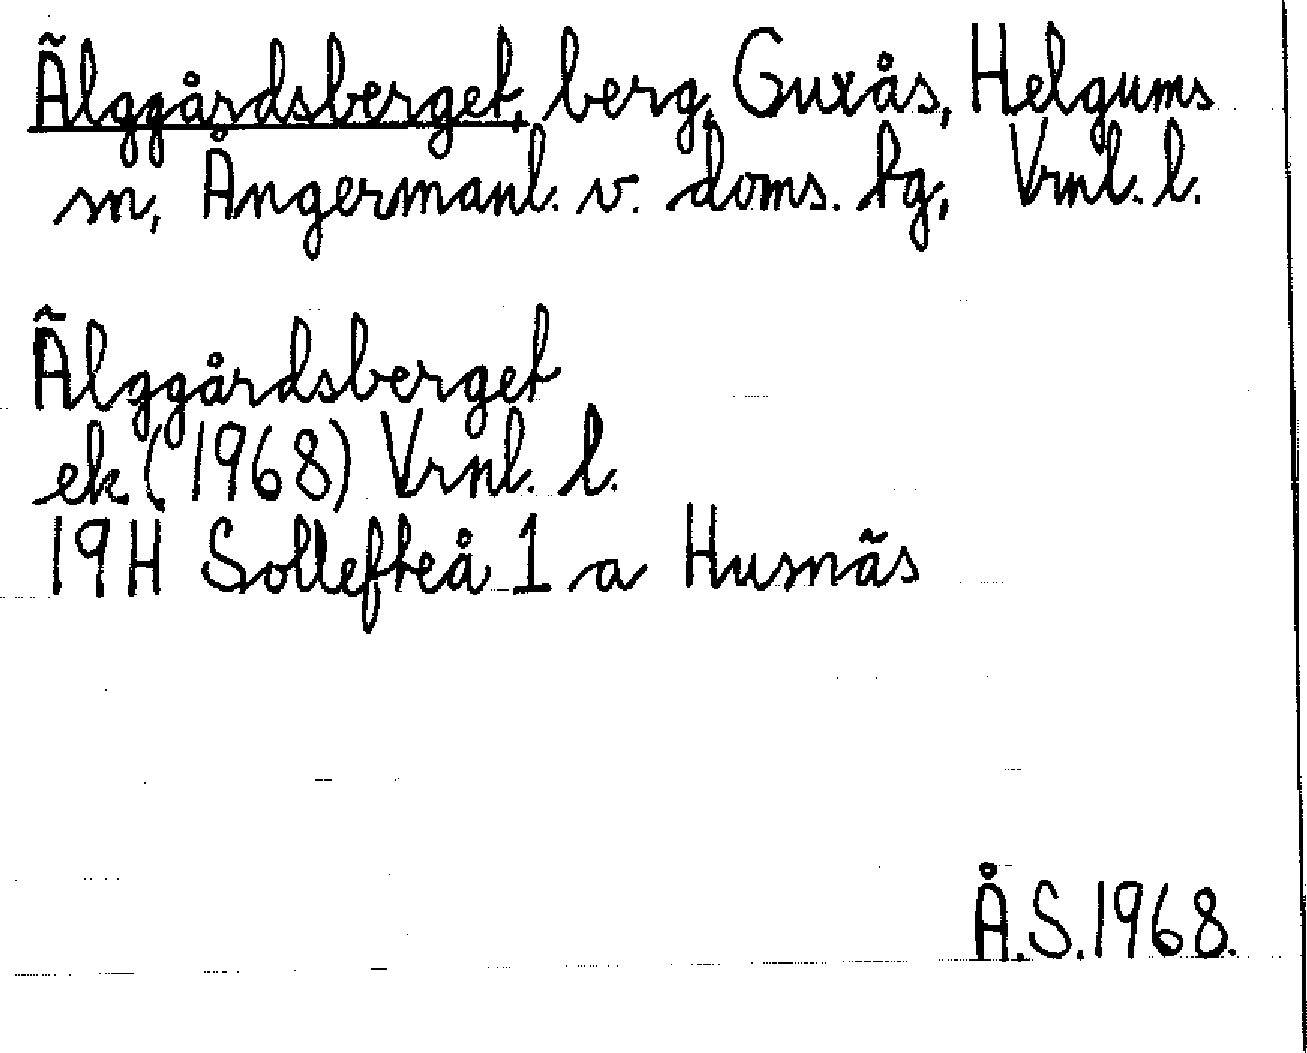 Älggårdsberget, berg, Guxås, Helgums
sn, Ångermanl. v. doms. tg, Vrnl. l.
Älggårdsberget
ek (1968) Vrnl. l.
19H Sollefteå 1 a Husnäs
Å.S.1968.